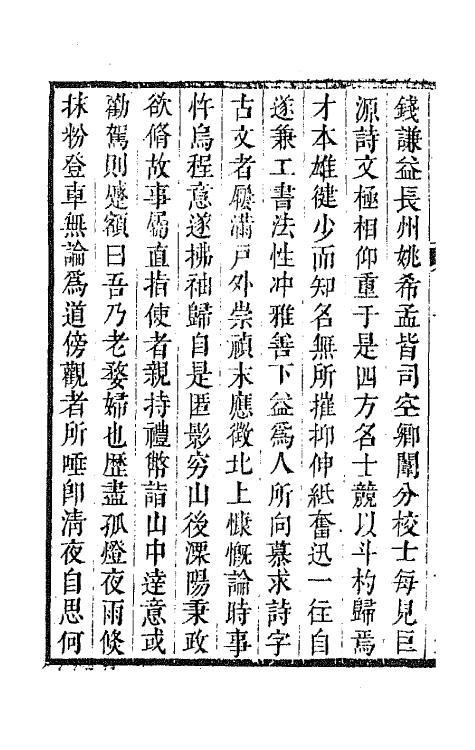 錢謙益長州姚希孟皆司空鄉闈分校士每見巨
源詩文極相仰重于是四方名士競以斗杓歸焉
才本雄健少而知名無所摧抑伸紙奮迅一往自
遂兼工書法性冲雅善下益爲人所向慕求詩字
古文者屨滿戸外崇禎末應徵北上慷慨論時事
忤烏程意遂拂袖歸自是匿影窮山後溧陽秉政
欲脩故事屬直指使者親持禮幣詣山中達意或
勸駕則蹙額曰吾乃老嫠婦也歴盡孤燈夜雨倐
抹粉登車無論爲道傍觀者所唾卽淸夜自思何